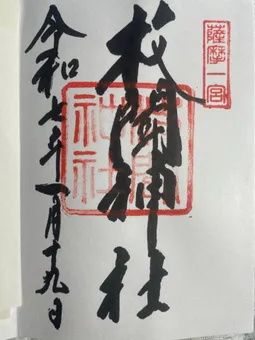 薩摩一宮
枚聞神社
令和七年一月十九日